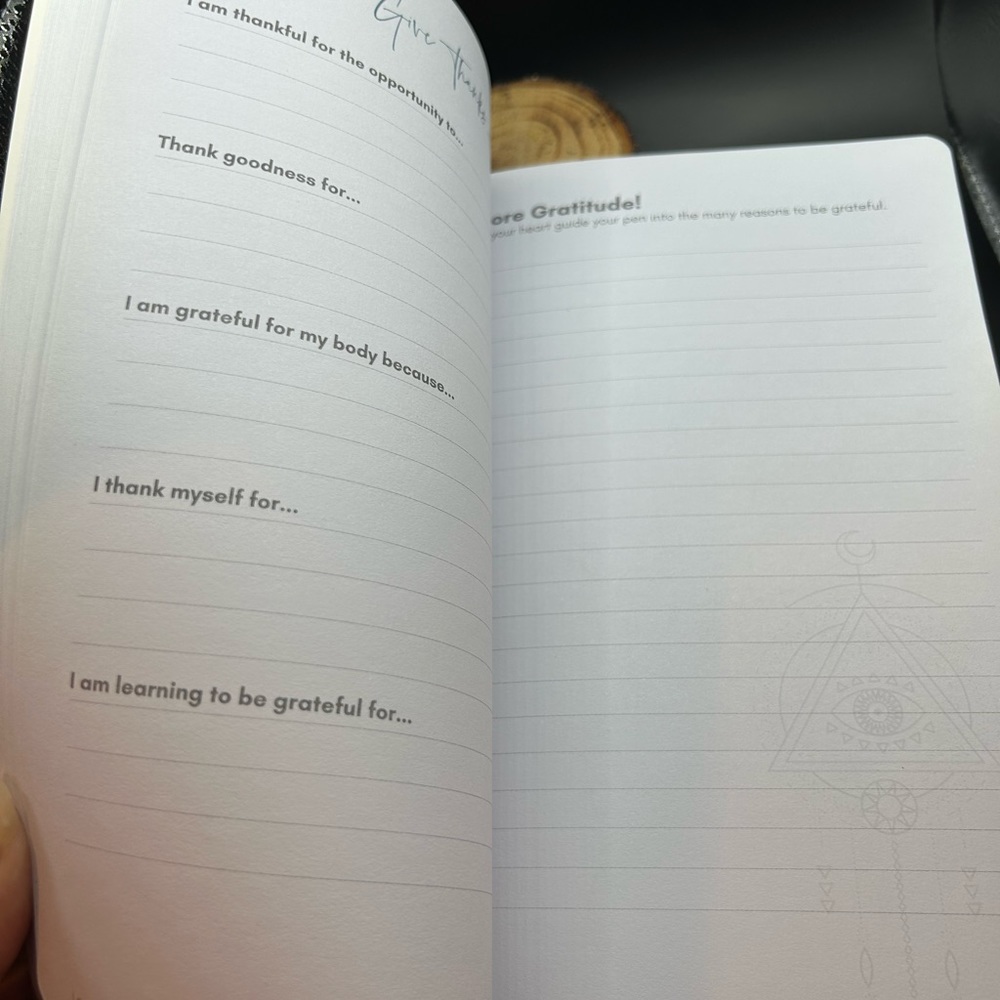 Give Thanks
I am thankful for the opportunity to...
Thank goodness for...
I am grateful for my body because...
I thank myself for...
I am learning to be grateful for...
ore Gratitude!
your heart guide your pen into the many reasons to be grateful.